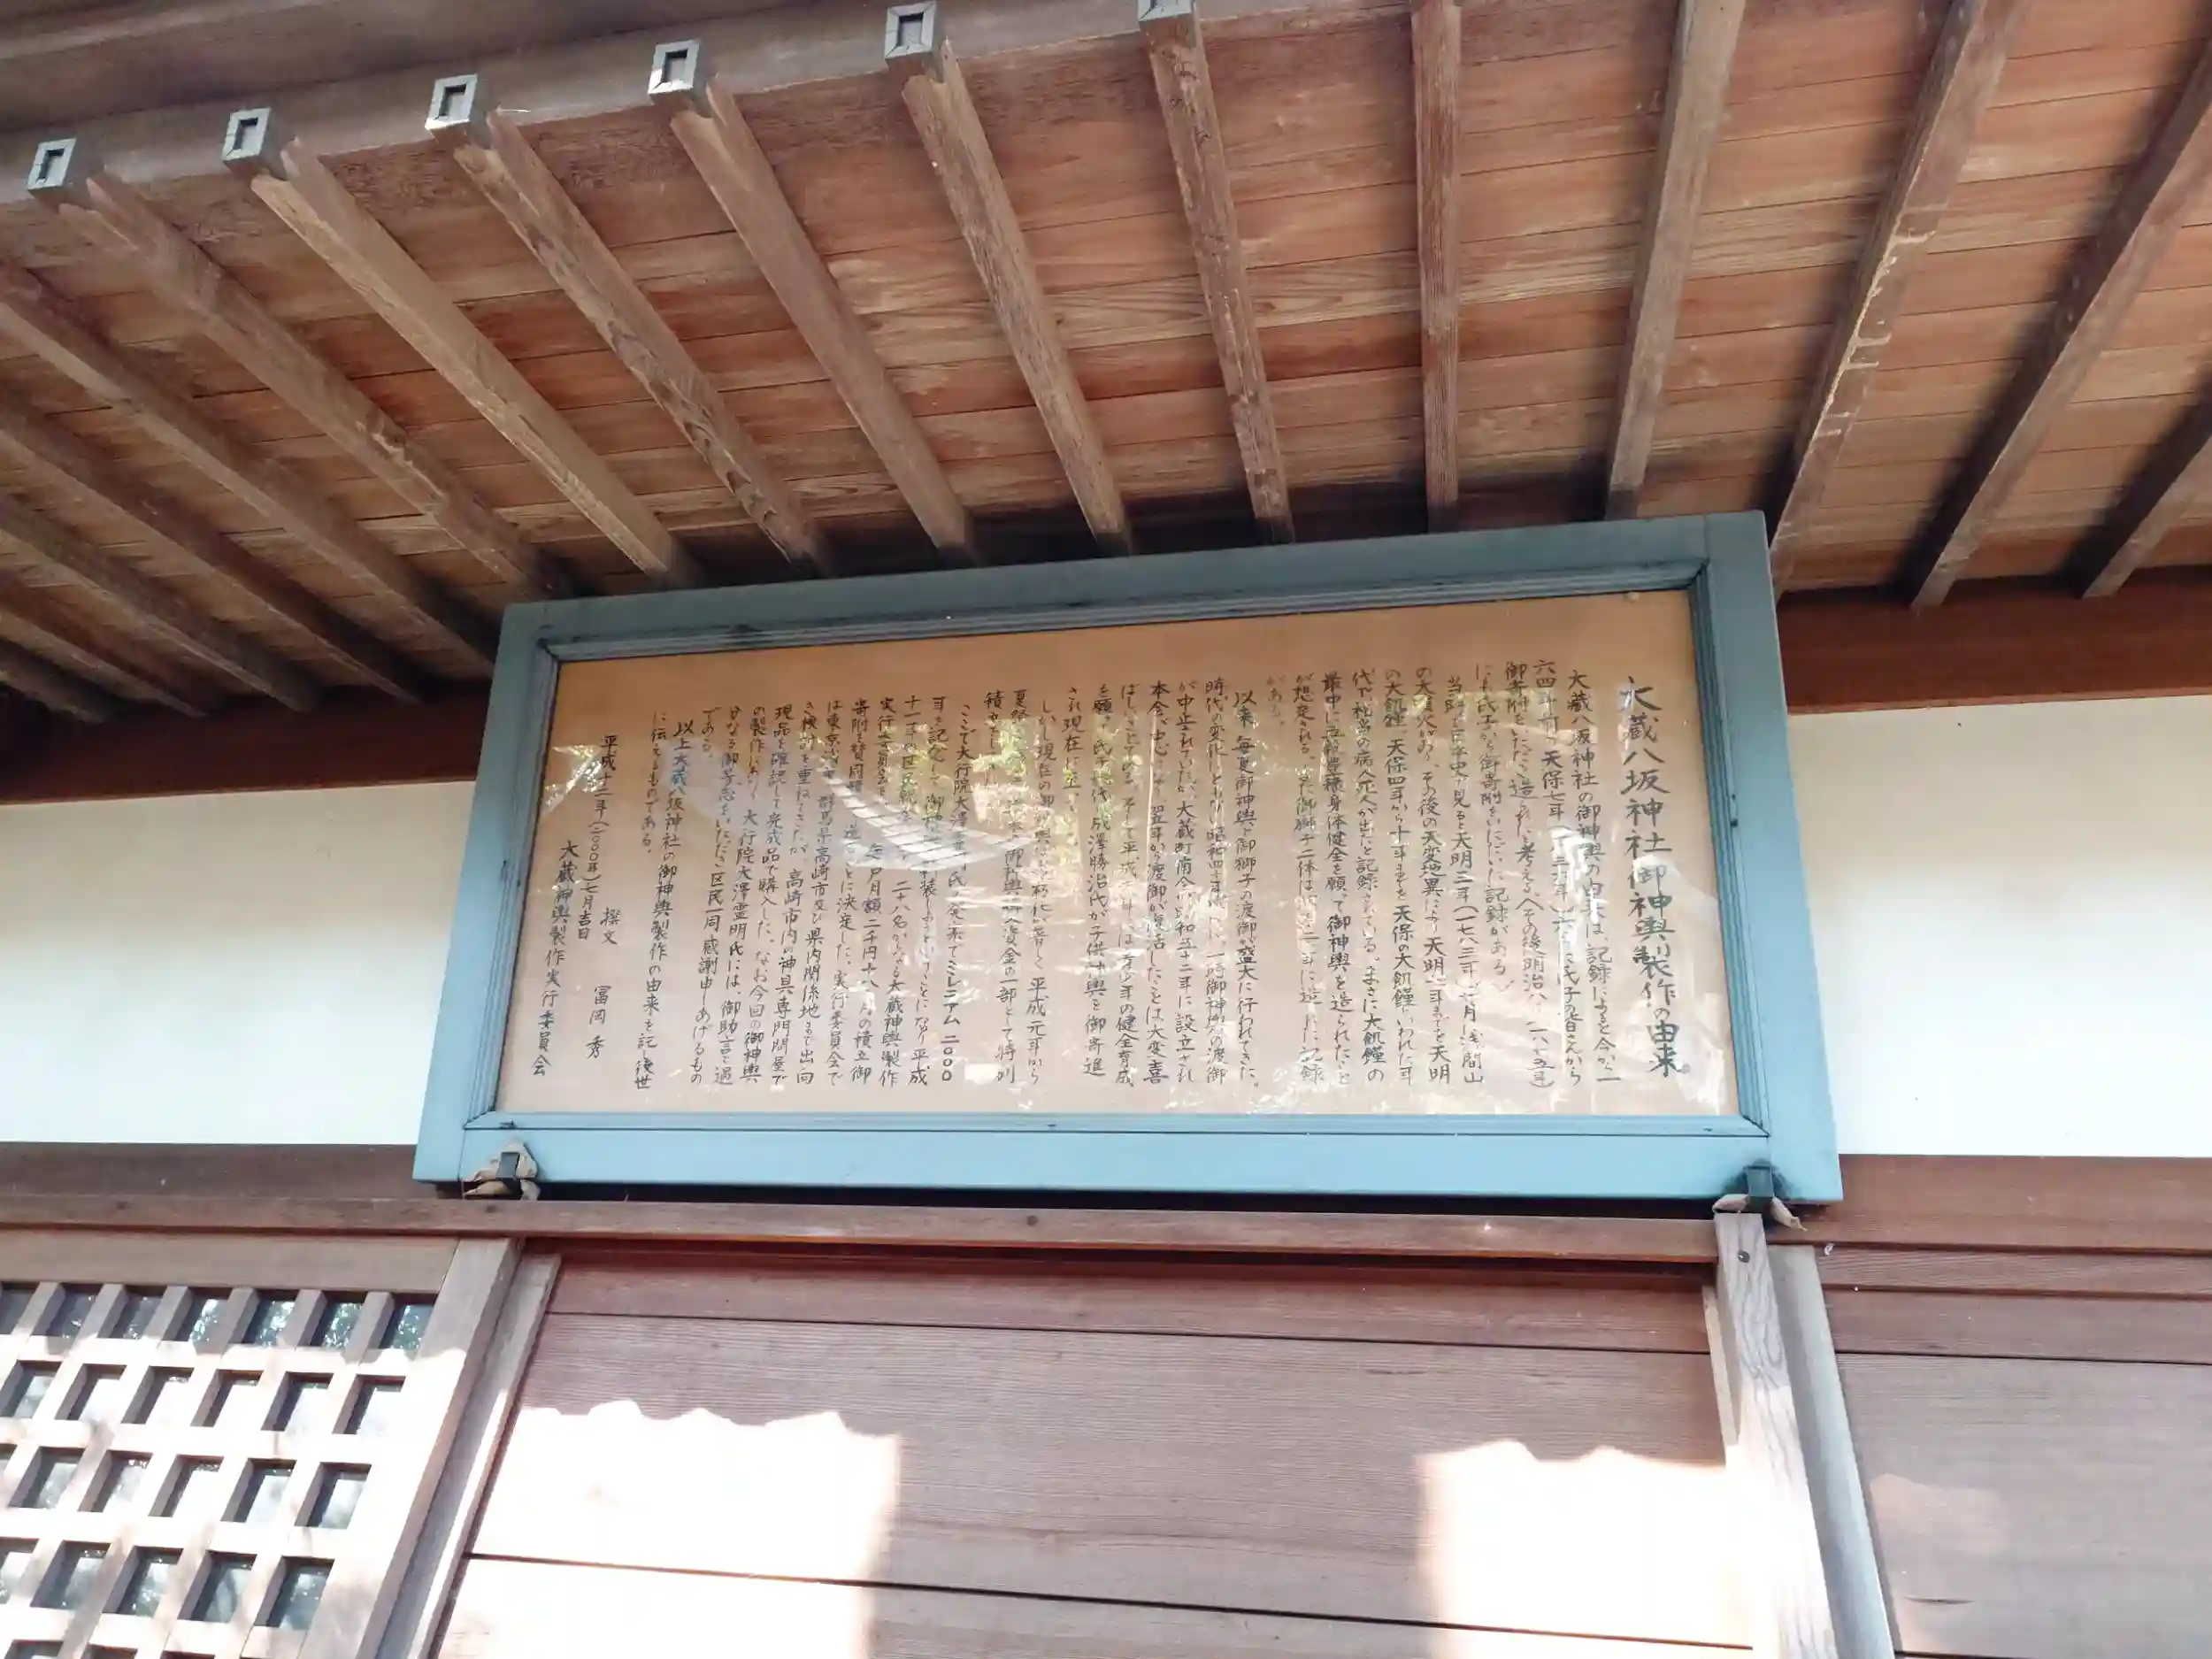 大蔵八坂神社御神輿製作の由来。
大蔵八坂神社の御神輿の由来は、記録によると今から一
六四年前、天保七年(一八三六年)大蔵氏子の皆さんから
御寄附をいただき造られたと考える。(その後明治八(一八七五年)
にも氏子から御寄附をいただいた記録がある。)
当時を区年史で見ると天明三年(一七八三年)七月浅間山
の大噴火があり、その後の天変地異により天明七年までを天明
の大飢饉、天保四年から十年までを天保の大飢饉といわれた年
代で相当の病人死人が出たと記録されている。まさに大飢饉の
最中に五穀豊穣身体健全を願って御神輿を造られたこと
が想定される。また御獅子二体は
がある。
以来、毎夏御神輿と御獅子の渡御が盛大に行われてきた。
時代の変化にともない昭和四十年代に、一時御神輿の渡御
が中止されていたが、大蔵町南会が昭和五十二年に設立され
本会が中心となり翌五年から渡御が復活したことは大変喜
ばしいことである。そして平成二年には青少年の健全育成
を願って氏子総代成澤勝治氏が子供神輿を御寄進
され現在に至っている。
しかし現在の御神輿は老朽化が著しく平成元年から
夏祭 御神輿購入資金の一部として特別
積立をして
ここで大行院大澤霊明氏の発案でミレニアム二〇〇〇
年を記念して御神輿 ということになり平成
十一年の区民総会 二十八名からなる大蔵神輿製作
実行委員会を 毎戸月額二千円十八ヶ月の積立御
寄附を賛同願い造ることに決定した。実行委員会で
は東京 群馬県高崎市及び県内関係地まで出向
き検討を重ねてきたが、高崎市内の神具専門問屋で
現品を確認して完成品で購入した。なお今回の御神輿
の製作にあたり大行院大澤霊明氏には、御助言と過
分なる御芳志をいただき区民一同感謝申しあげるもの
である。
以上大蔵八坂神社の御神輿製作の由来を記し後世
に伝えるものである。
平成十二年(二〇〇〇年)七月吉日
撰文 冨岡 秀
大蔵神輿製作実行委員会